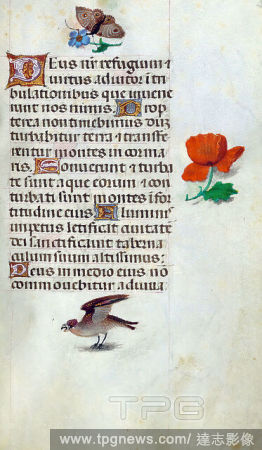 Deus nr̄ refugium ⁊
uirtus adiutor ī tri
bulationibus que inuene
runt nos nimis. Pro
pterea non timebimus dū
turbabitur terra ⁊ transfe
rentur montes in cor ma
ris. Sonuerunt ⁊ turba
te sunt aque eorum ⁊ con
turbati sunt montes ī for
titudine eius. Fluminis
impetus letificat ciuitatē
dei sanctificauit taberna
culum suum altissimus.
Deus in medio eius nō
commouebitur adiuua
TPG
www.tpgnews.com/ 達志影像